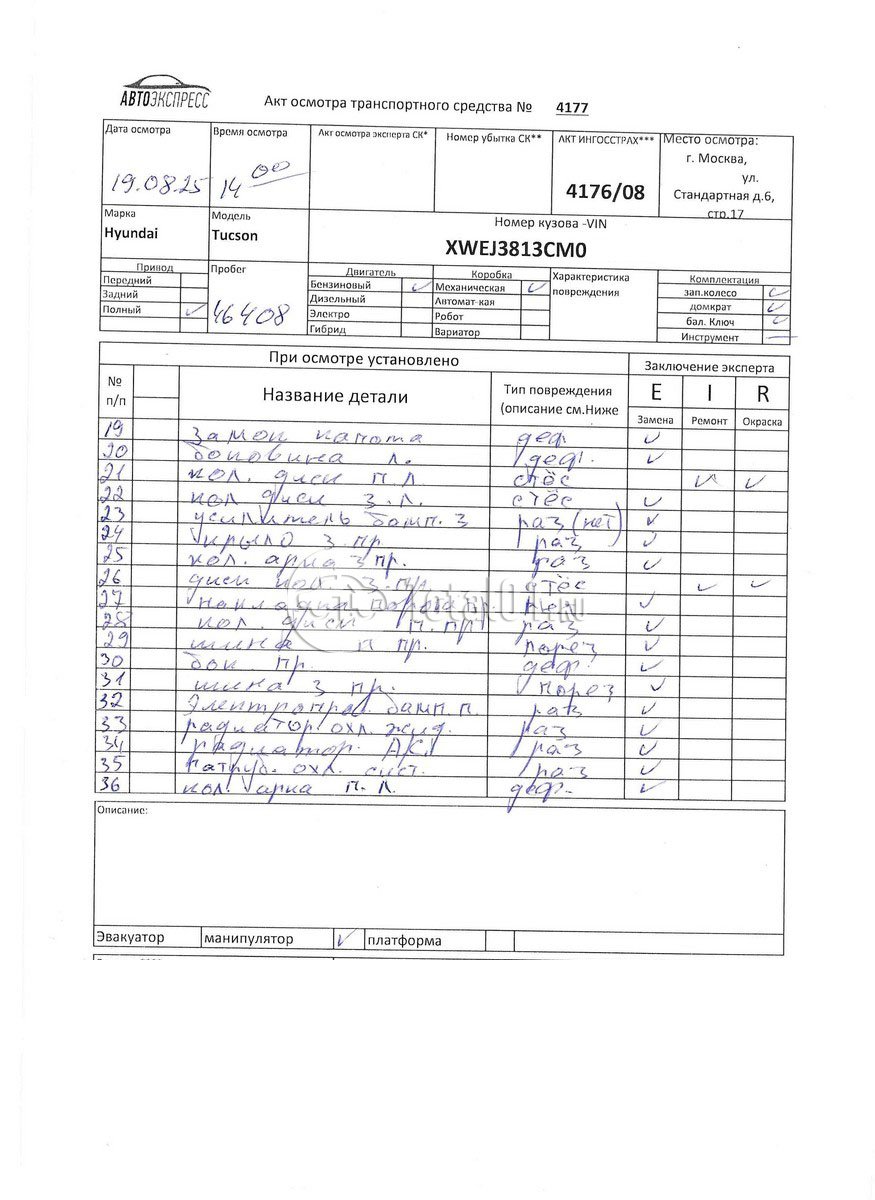 АВТОЭКСПРЕСС
Акт осмотра транспортного средства № 4177
Дата осмотра
19.08.25
Время осмотра
14 00
Акт осмотра эксперта СК*
Номер убытка СК**
АКТ ИНГОССТРАХ***
4176/08
Место осмотра:
г. Москва,
ул.
Стандартная д.6,
стр.17
Марка
Hyundai
Модель
Tucson
Номер кузова -VIN
XWEJ3813CM0
Привод
Передний
Задний
Полный ✓
Пробег
46408
Двигатель
Бензиновый ✓
Дизельный
Электро
Гибрид
Коробка
Механическая ✓
Автомат-кая
Робот
Вариатор
Характеристика
повреждения
Комплектация
зап.колесо ✓
домкрат ✓
бал. Ключ ✓
Инструмент —
При осмотре установлено
Заключение эксперта
№
п/п
Название детали
Тип повреждения
(описание см.Ниже
E I R
Замена Ремонт Окраска
19 замок капота деф ✓
20 боковина л. деф. ✓
21 кол. диск п л стёс ✓ ✓
22 кол диск з.л. стёс ✓
23 усилитель бамп. з раз (нет) ✓
24 крыло з пр раз ✓
25 кол. арка з пр. раз ✓
26 диск кол. з.пр. стёс ✓ ✓
27 накладка порога ✓
28 кол. диск п. пр. раз ✓
29 шина п пр. порез ✓
30 бок. пр. деф. ✓
31 шина з пр. порез ✓
32 бамп п. раз ✓
33 радиатор охл. жид. раз ✓
34 радиатор раз ✓
35 патруб. охл. сист. раз ✓
36 кол. арка п. л. деф. ✓
Total01.RU
Описание:
Эвакуатор манипулятор ✓ платформа